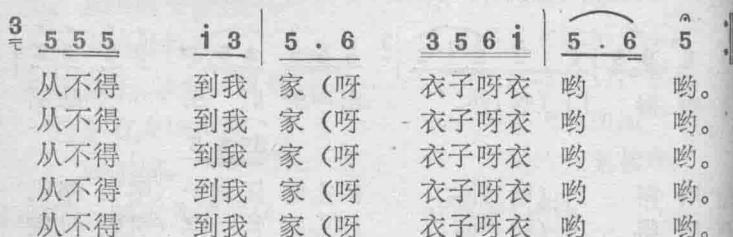 3 5 5 5 i 3 | 5 . 6 3 5 6 i | 5 . 6 5 :
从不得 到我 家（呀 衣子呀衣 哟 哟。
从不得 到我 家（呀 衣子呀衣 哟 哟。
从不得 到我 家（呀 衣子呀衣 哟 哟。
从不得 到我 家（呀 衣子呀衣 哟 哟。
从不得 到我 家（呀 衣子呀衣 哟 哟。